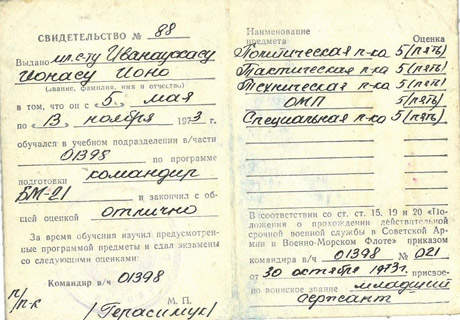 СВИДЕТЕЛЬСТВО № 88
Выдано мл. с-ту Иванаускасу
Ионасу Ионо
(звание, фамилия, имя и отчество)
в том, что он с «5» мая
по «13» ноября 1973 г.
обучался в учебном подразделении в/части
01398 по программе
подготовки командир
БМ-21 и закончил с об-
щей оценкой отлично
За время обучения изучил предусмотрен-
ные программой предметы и сдал экзамены
со следующими оценками:
Командир в/ч 01398
п/п-к М. П.
/Герасимук/
Наименование предмета Оценка
Политическая п-ка 5 (пять)
Тактическая п-ка 5 (пять)
Техническая п-ка 5 (пять)
ОМП 5 (пять)
Специальная п-ка 5 (пять)
В соответствии со ст. ст. 15, 19 и 20 «По-
ложения о прохождении действительной
срочной военной службы в Советской Ар-
мии и Военно-Морском Флоте» приказом
командира в/ч 01398 № 021
от 30 октября 1973 г. присвое-
но воинское звание младший
сержант